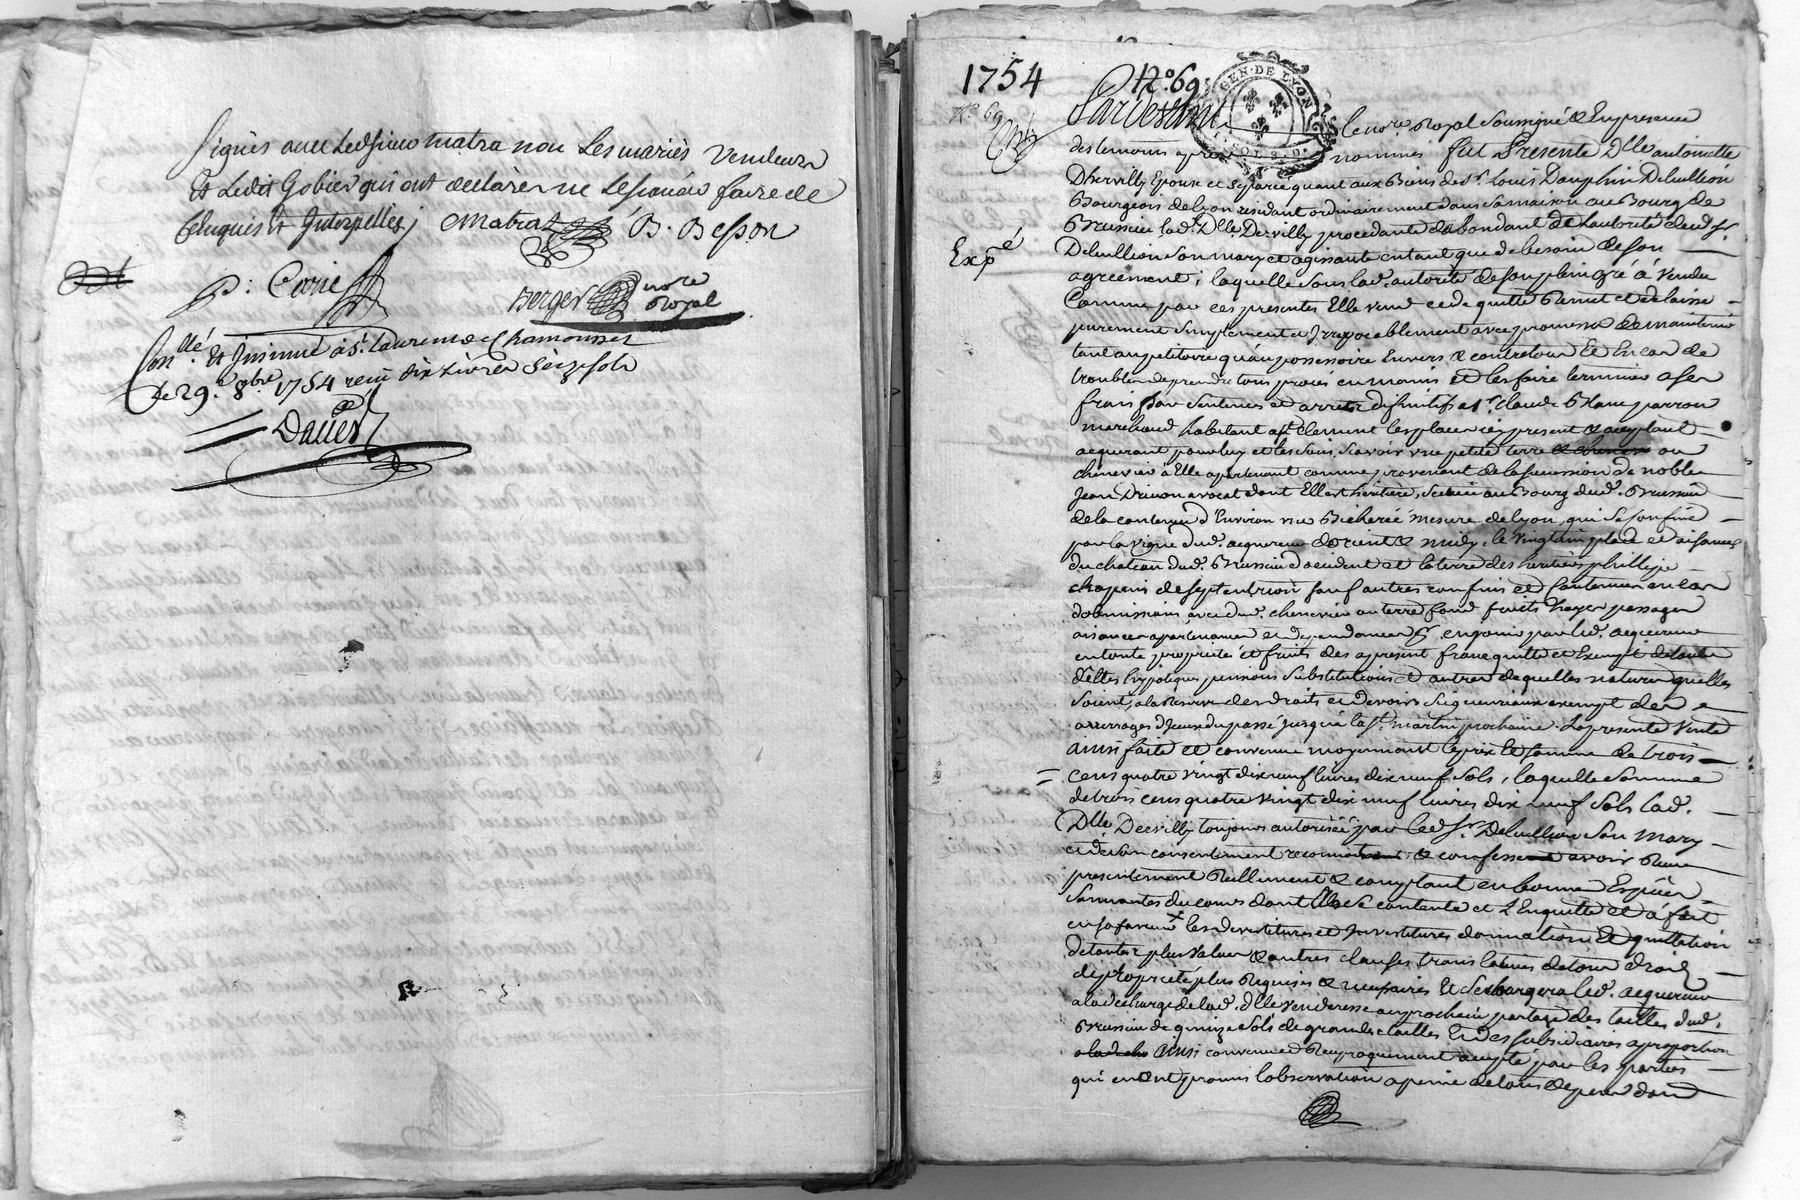 signés avec led sieur matra non Les mariés vendeurs
et Ledit Gobier qui ont declarés ne le scavoir faire de
Enquis et Interpellés / Matra B. Besson
p: Cerise
Berger nore Royal
Conllé et Insinué à St. Laurens de Chamousset
Le 29e. 8bre. 1754 reçu dix Livres seize sols
Daues
1754 No. 69
No. 69
Expé
Pardevant le nore. Royal soussigné & En presence
des temoins apres nommés fut Presente Dlle antoinette
Dhervilly Epouse et separée quant aux Biens de Sr. Louis Dauphin Delullion
Bourgeois de Lyon residant ordinairement dans sa maison au Bourg de
Brussieu lad. Dlle Dervilly procedante d'abondant de Lautorité dud Sr.
Delullion son mary et agissante en tant que de besoin de son
agreement; laquelle sous lad. autorité de son plein gré á vendu
Comme par ces presentes Elle vend cede quitte Remet et delaisse
purement simplement et Irrevocablement avec promesse de maintenir
tant au petitoire qu'au possessoire Envers & contre tous Et En cas de
troubles de prendre tous procés en mains et les faire terminer a ses
frais par sentences et arrets diffinitifs a Sr. claude
marchand habitant a St Clement les places icy present & acceptant
acquereur pour luy et les siens, scavoir une petite terre ou
cheneviere à Elle apartenant comme provenant de la succession de noble
Jean avocat dont Elle est héritiere, scituée au Bourg dud. Brussieu
de la contenue d'Environ une Bicherée mesure de Lyon, qui se confine
par la vigne dud. acquereur d'orient & midy, le vingtain place et aisances
du chateau dud. Brussieu d'occident et la terre des heritiers phillipe
chapuis de septentrion sauf autres confins et Contenues en cas
d'obmissions avec dud. chenevier ou terre fond fruits hayes passages
aisances apartenances et dependances En jouir par led. acquereur
en toute proprieté et fruits des apresent franc quitte et Exempt de toutes
dettes hyppoteques pensions substitutions et autres de quelles natures quelles
soient, a la Reserve des droits et devoirs seigneuriaux exempt des
arrerages d'Iceux du passé jusqu'à la St. martin prochaine. La presente vente
ainsi faite et convenue moyennant le prix et somme de trois
cens quatre vingt dix neuf livres dix neuf sols, laquelle somme
de trois cens quatre vingt dix neuf livres dix neuf sols lad.
Dlle Dervilly toujours autorisée par led Sr. Delullion son mary
et de son consentement reconnoit & confesse avoir Reçu
presentement Reellement & comptant en bonnes Especes
sonnantes du cours dont Elle se contente et L'Enquitte et á fait
en sa faveur les devestitures et Investitures donnation et quittation
de toutes plus values & autres clauses translatives de tous droits
de proprieté plus Requises & necessaires Et se chargera led. acquereur
a la decharge de lad. Dlle venderesse au prochain partage des tailles dud.
Brussieu de quinze sols de grandes tailles Et des subsidiaires a proportion
ainsi convenu et Reciproquement accepté par les parties
qui en ont promis l'observation a peine de tous depens dom